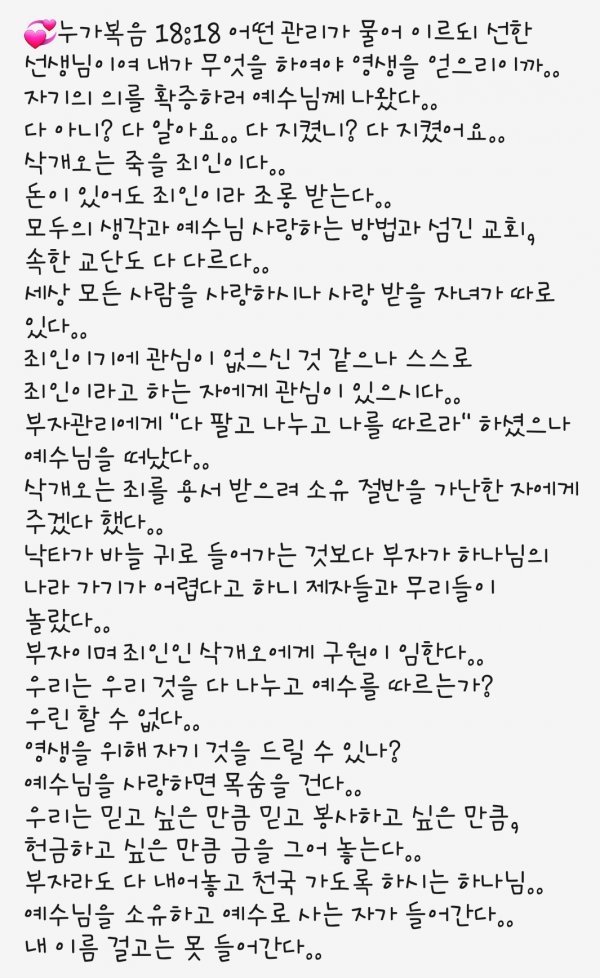 💞누가복음 18:18 어떤 관리가 물어 이르되 선한
선생님이여 내가 무엇을 하여야 영생을 얻으리이까..
자기의 의를 확증하러 예수님께 나왔다..
다 아니? 다 알아요.. 다 지켰니? 다 지켰어요..
삭개오는 죽을 죄인이다..
돈이 있어도 죄인이라 조롱 받는다..
모두의 생각과 예수님 사랑하는 방법과 섬긴 교회,
속한 교단도 다 다르다..
세상 모든 사람을 사랑하시나 사랑 받을 자녀가 따로
있다..
죄인이기에 관심이 없으신 것 같으나 스스로
죄인이라고 하는 자에게 관심이 있으시다..
부자관리에게 "다 팔고 나누고 나를 따르라" 하셨으나
예수님을 떠났다..
삭개오는 죄를 용서 받으려 소유 절반을 가난한 자에게
주겠다 했다..
낙타가 바늘 귀로 들어가는 것보다 부자가 하나님의
나라 가기가 어렵다고 하니 제자들과 무리들이
놀랐다..
부자이며 죄인인 삭개오에게 구원이 임한다..
우리는 우리 것을 다 나누고 예수를 따르는가?
우린 할 수 없다..
영생을 위해 자기 것을 드릴 수 있나?
예수님을 사랑하면 목숨을 건다..
우리는 믿고 싶은 만큼 믿고 봉사하고 싶은 만큼,
헌금하고 싶은 만큼 금을 그어 놓는다..
부자라도 다 내어놓고 천국 가도록 하시는 하나님..
예수님을 소유하고 예수로 사는 자가 들어간다..
내 이름 걸고는 못 들어간다..